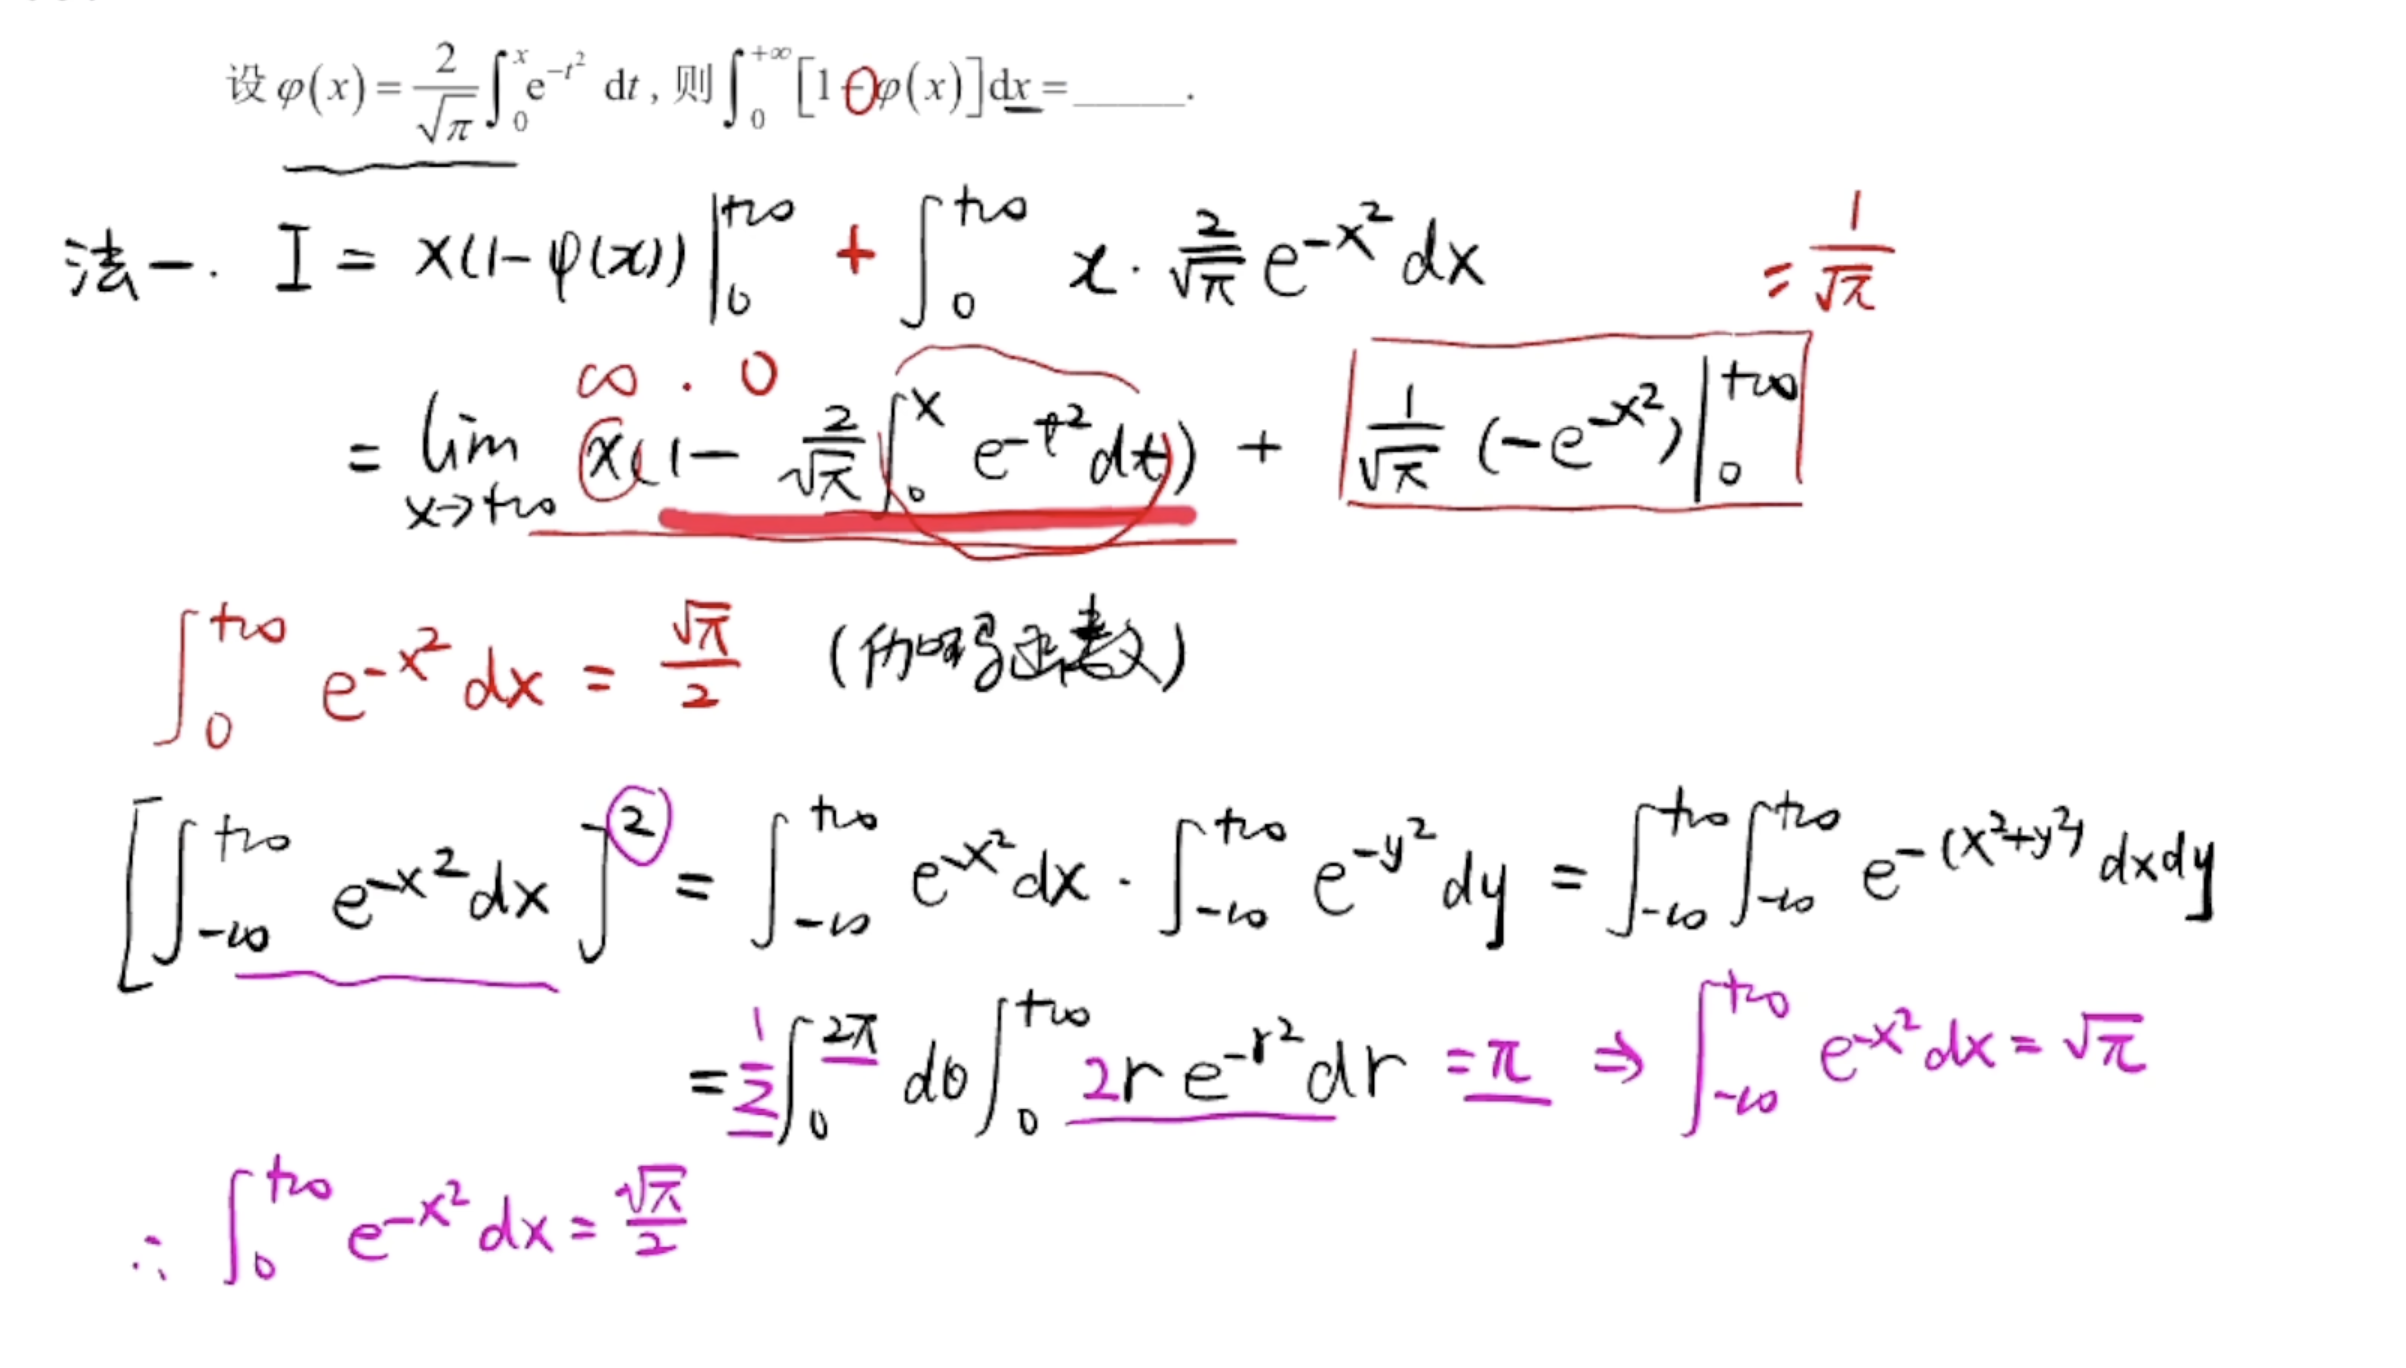 设 φ(x) = 2/√π ∫₀ˣ e^(-t²) dt, 则 ∫₀^(+∞) [1-φ(x)]dx = ______.
法一. I = x(1-φ(x)) |₀^(+∞) + ∫₀^(+∞) x · 2/√π e^(-x²) dx = 1/√π
∞ · 0
= lim x→+∞ x(1 - 2/√π ∫₀ˣ e^(-t²) dt) + 1/√π (-e^(-x²)) |₀^(+∞)
∫₀^(+∞) e^(-x²) dx = √π/2 (伽玛函数)
[∫_(-∞)^(+∞) e^(-x²) dx]² = ∫_(-∞)^(+∞) e^(-x²) dx · ∫_(-∞)^(+∞) e^(-y²) dy = ∫_(-∞)^(+∞) ∫_(-∞)^(+∞) e^(-(x²+y²)) dxdy
= 1/2 ∫₀^(2π) dθ ∫₀^(+∞) 2r e^(-r²) dr = π ⇒ ∫_(-∞)^(+∞) e^(-x²) dx = √π
∴ ∫₀^(+∞) e^(-x²) dx = √π/2